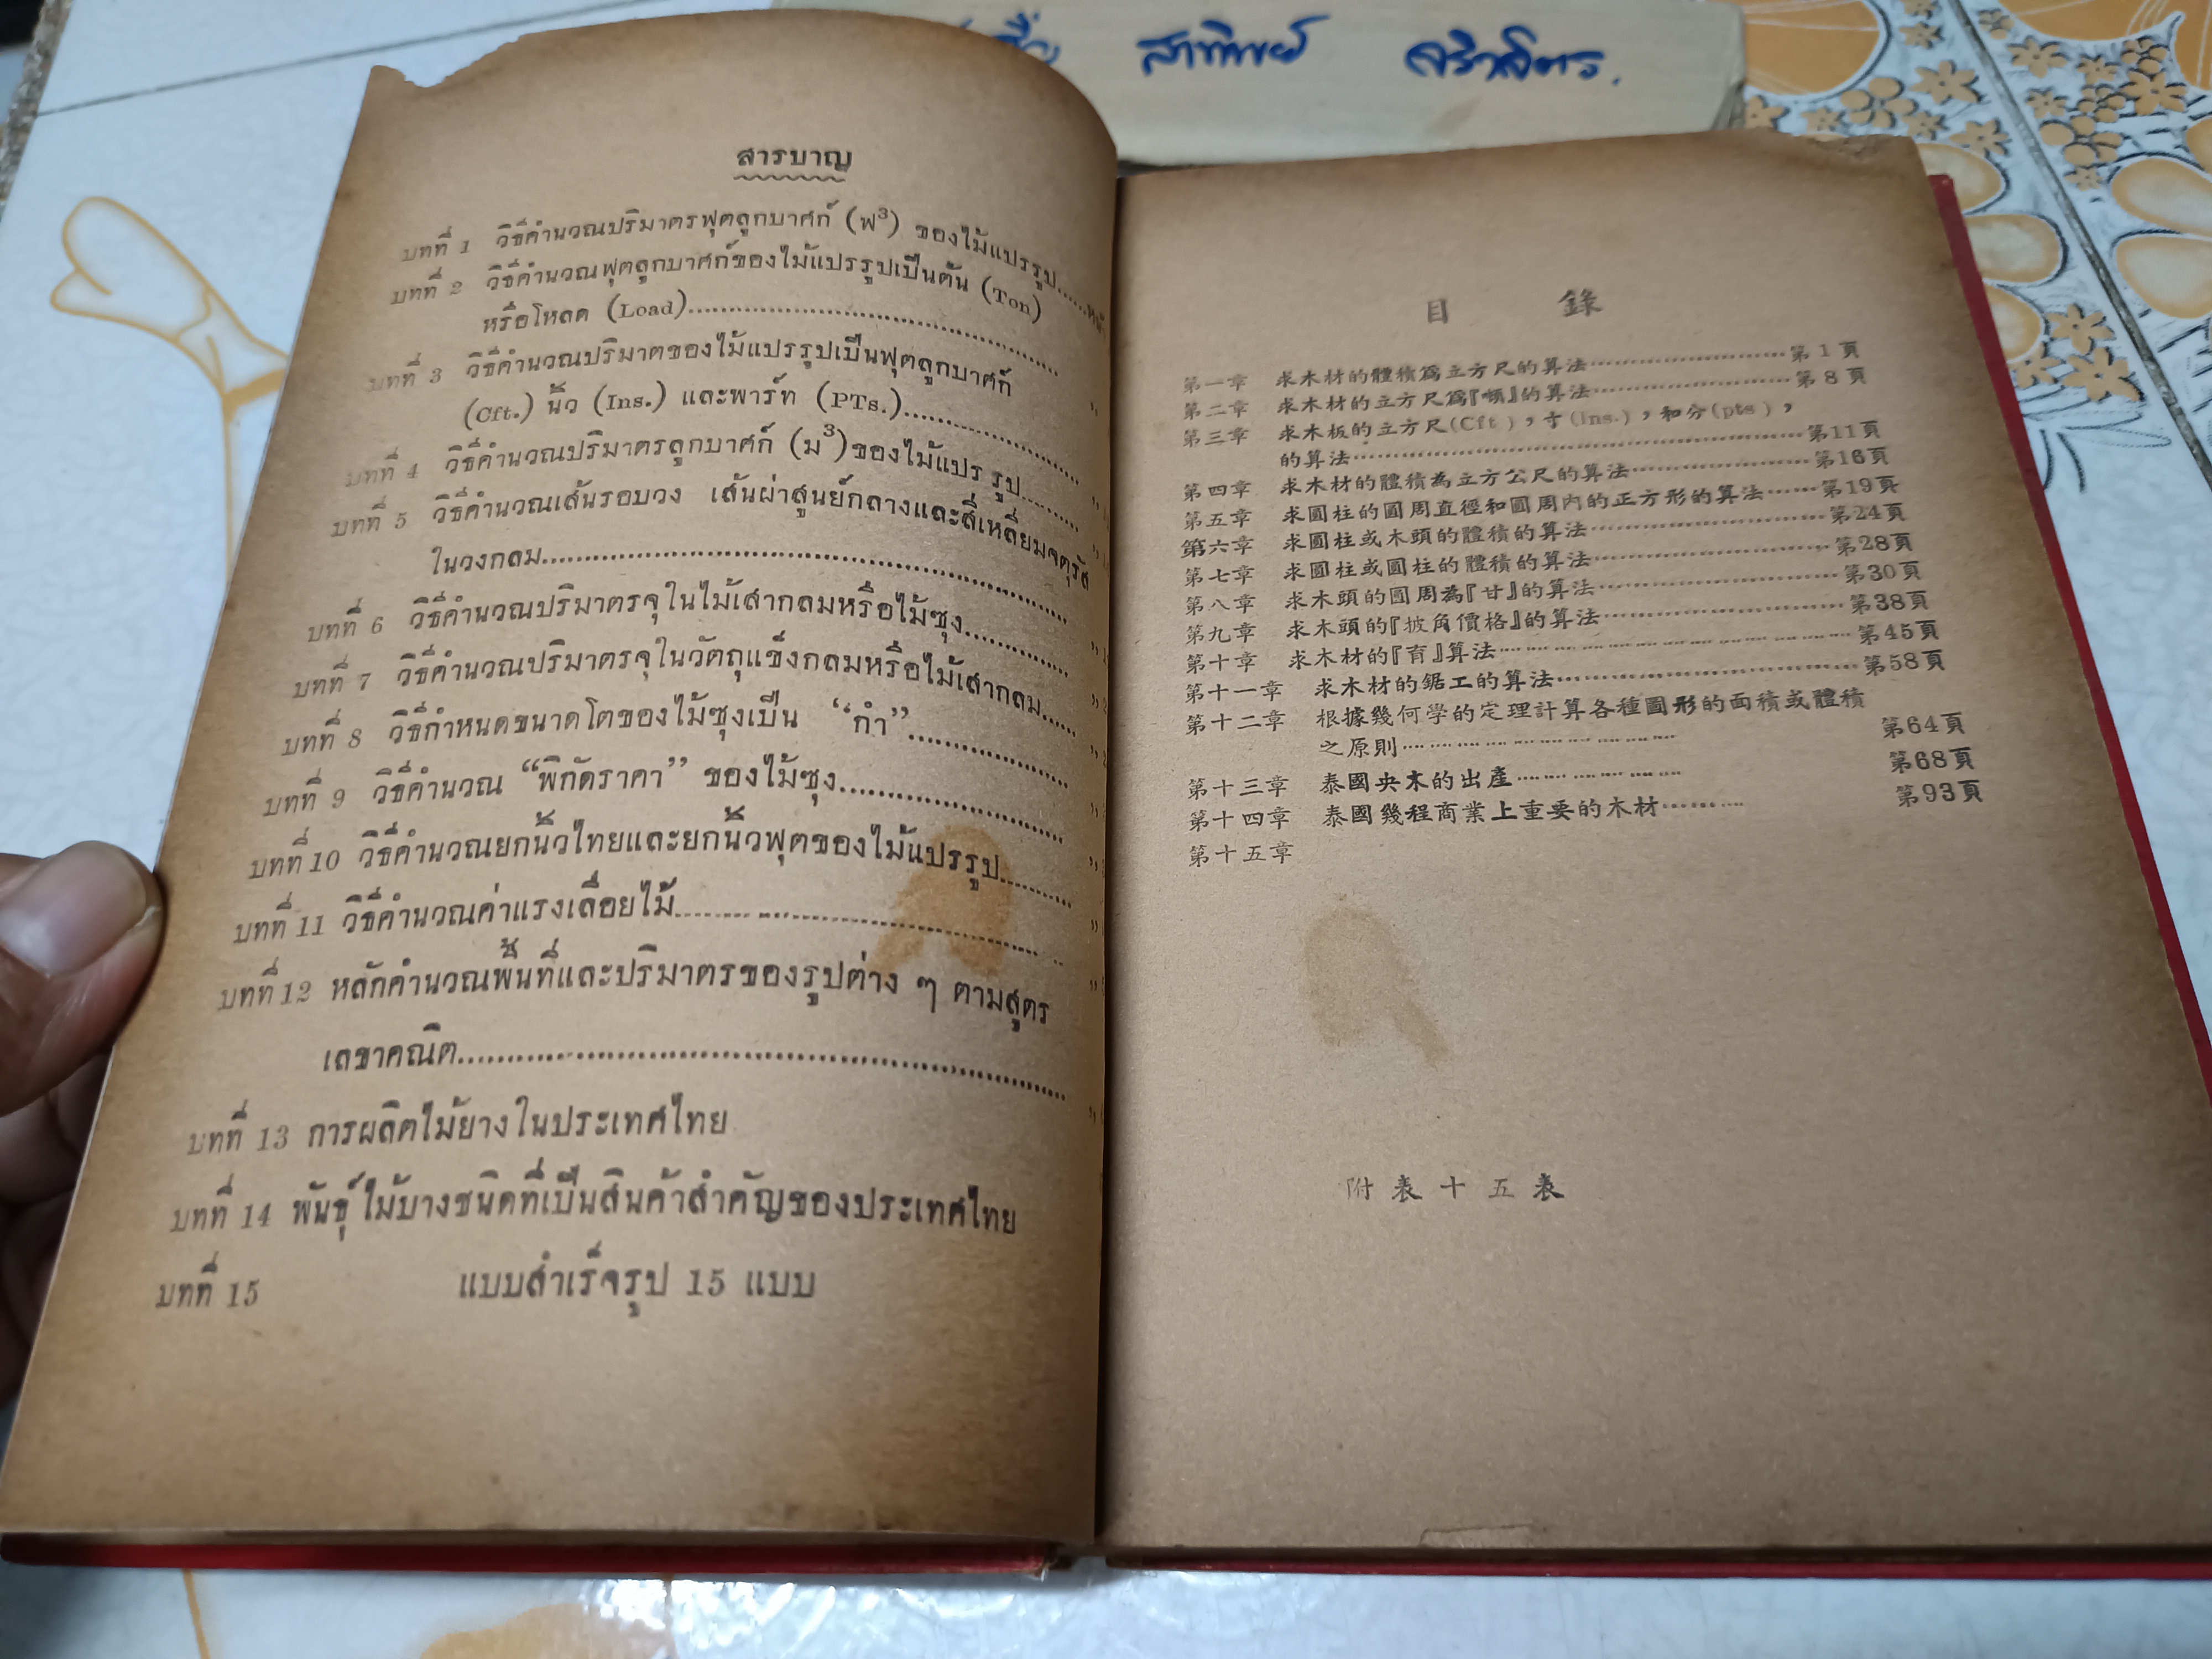 สาทิพย์
สารบาญ
บทที่ 1 วิธีคำนวณปริมาตรฟุตลูกบาศก์ (ฟ³) ของไม้แปรรูป......
บทที่ 2 วิธีคำนวณฟุตลูกบาศก์ของไม้แปรรูปเป็นตัน (Ton)
หรือโหลด (Load)..........
บทที่ 3 วิธีคำนวณปริมาตของไม้แปรรูปเป็นฟุตลูกบาศก์
(Cft.) นิ้ว (Ins.) และพาร์ท (PTs.)..........
บทที่ 4 วิธีคำนวณปริมาตรลูกบาศก์ (ม³)ของไม้แปร รูป.........
บทที่ 5 วิธีคำนวณเส้นรอบวง เส้นผ่าสูนย์กลางและสี่เหลี่ยมจตุรัส
ในวงกลม..........
บทที่ 6 วิธีคำนวณปริมาตรจุในไม้เสากลมหรือไม้ซุง..........
บทที่ 7 วิธีคำนวณปริมาตรจุในวัตถุแข็งกลมหรือไม้เสากลม......
บทที่ 8 วิธีกำหนดขนาดโตของไม้ซุงเป็น “กำ”..........
บทที่ 9 วิธีคำนวณ “พิกัดราคา” ของไม้ซุง..........
บทที่ 10 วิธีคำนวณยกนิ้วไทยและยกนิ้วฟุตของไม้แปรรูป..........
บทที่ 11 วิธีคำนวณค่าแรงเลื่อยไม้..........
บทที่ 12 หลักคำนวณพื้นที่และปริมาตรของรูปต่าง ๆ ตามสูตร
เลขาคณิต..........
บทที่ 13 การผลิตไม้ยางในประเทศไทย
บทที่ 14 พันธุ์ไม้บางชนิดที่เป็นสินค้าสำคัญของประเทศไทย
บทที่ 15 แบบสำเร็จรูป 15 แบบ
目 錄
第一章 求木材的體積爲立方尺的算法……………第1頁
第二章 求木材的立方尺爲『噸』的算法……………第8頁
第三章 求木板的立方尺(Cft)，寸(Ins.)，和分(pts)，
的算法……………第11頁
第四章 求木材的體積為立方公尺的算法……………第16頁
第五章 求圓柱的圓周直徑和圓周內的正方形的算法……第19頁
第六章 求圓柱或木頭的體積的算法……………第24頁
第七章 求圓柱或圓柱的體積的算法……………第28頁
第八章 求木頭的圓周為『甘』的算法……………第30頁
第九章 求木頭的『披角價格』的算法……………第38頁
第十章 求木材的『育』算法……………第45頁
第十一章 求木材的鋸工的算法……………第58頁
第十二章 根據幾何學的定理計算各種圖形的面積或體積
之原則……………第64頁
第十三章 泰國央木的出產……………第68頁
第十四章 泰國幾程商業上重要的木材………第93頁
第十五章
附表十五表